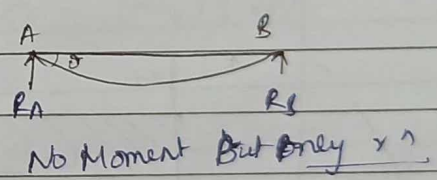 A B
θ
RA RB
No Moment But Only